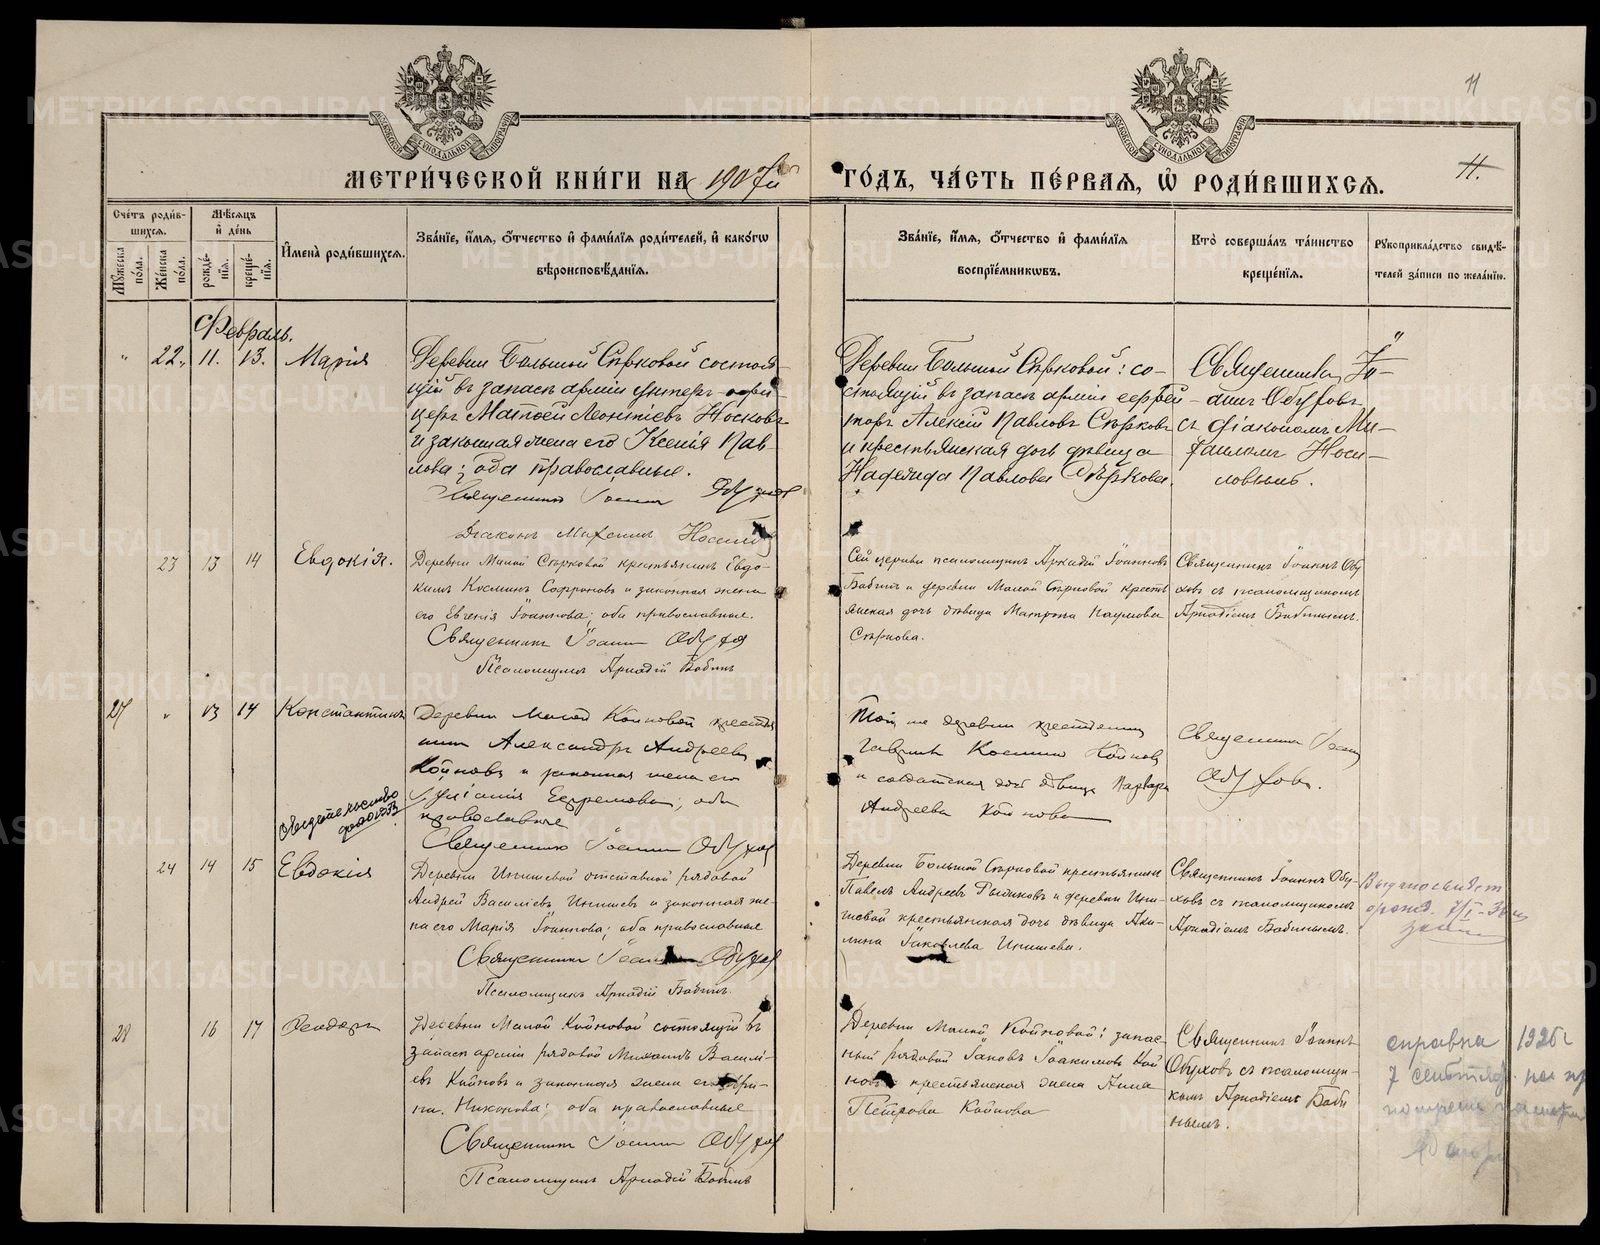 METRIKI.GASO-URAL.RU
11
11.
МЕТРИ́ЧЕСКОЙ КНИ́ГИ НА 1907й ГО́ДЪ, ЧА́СТЬ ПЕ́РВАЯ, Ѡ РОДИ́ВШИХСѦ.
Сче́тъ роди́вшихсѧ.
Мꙋ́жеска по́ла.
Же́нска по́ла.
Мѣ́сѧцъ и҆ де́нь
рожде́нїѧ.
креще́нїѧ.
И҆мена̀ роди́вшихсѧ.
Зва́нїе, и҆́мѧ, ѻ҆́тчество и҆ фами́лїѧ роди́телей, и҆ како́гѡ
вѣроисповѣ́данїѧ.
Зва́нїе, и҆́мѧ, ѻ҆́тчество и҆ фами́лїѧ
воспрїе́мникѡвъ.
Кто̀ соверша́лъ та́инство
креще́нїѧ.
Рꙋкоприкла́дство свидѣ́-
телей за́писи по жела́нїю.
Февраль.
" 22. 11. 13. Марія
Деревни Большой Сѣрковой состоя-
щій въ запасѣ арміи унтеръ-офи-
церъ Матѳей Леонтіевъ Носковъ
и законная жена его Ксенія Пав-
лова; оба православные.
Священникъ Іоаннъ Обуховъ
Діаконъ Михаилъ Носиловъ
Деревни Большой Сѣрковой: со-
стоящій въ запасѣ арміи
Алексѣй Павловъ Сѣрковъ
и крестьянская дочь дѣвица
Надежда Павлова Сѣркова.
Священникъ Іо-
аннъ Обуховъ
съ діакономъ Ми-
хаиломъ Носи-
ловымъ.
23 13 14 Евдокія.
Деревни Малой Сѣрковой крестьянинъ Евдо-
кимъ Косминъ Софроновъ и законная жена
его Евгенія Іоаннова; оба православные.
Священникъ Іоаннъ Обуховъ
Псаломщикъ Аркадій Бабинъ
Сей церкви псаломщикъ Аркадій Іоанновъ
Бабинъ и деревни Малой Сѣрковой кресть
янская дочь дѣвица Матрона Наумова
Сѣркова.
Священникъ Іоаннъ Обу
ховъ съ псаломщикомъ
Аркадіемъ Бабинымъ.
27 " 13 14 Константинъ
Деревни Малой Койновой крестья
нинъ Александръ Андреевъ
Койновъ и законная жена его
Іуліанія Ефремова; оба
православные
Священникъ Іоаннъ Обуховъ
Той же деревни крестьянинъ
Гавріилъ Косминъ Койновъ
и солдатская дочь дѣвица Варвара
Андреева Койнова
Священникъ Іоаннъ
Обуховъ.
24 14 15 Евдокія
Деревни Инишевой отставной рядовой
Андрей Василіевъ Инишевъ и законная же-
на его Марія Іоаннова; оба православные
Священникъ Іоаннъ Обуховъ
Псаломщикъ Аркадій Бабинъ.
Деревни Большой Сѣрковой крестьянинъ
Павелъ Андреевъ Рычковъ и деревни Ини-
шевой крестьянская дочь дѣвица Аки-
лина Іаковлева Инишева.
Священникъ Іоаннъ Обу-
ховъ съ псаломщикомъ
Аркадіемъ Бабинымъ.
28 16 17 Ѳеодоръ
Деревни Малой Койновой состоящій въ
запасѣ арміи рядовой Михаилъ Василі-
евъ Койновъ и законная жена его Ири-
на Никонова; оба православные
Священникъ Іоаннъ Обуховъ
Псаломщикъ Аркадій Бабинъ
Деревни Малой Койновой: запас-
ный рядовой Іаковъ Іоакимовъ Кой
новъ и крестьянская жена Анна
Петрова Койнова
Священникъ Іоаннъ
Обуховъ съ псаломщи-
комъ Аркадіемъ Баби
нымъ.
справка 1926 г
7 сентября